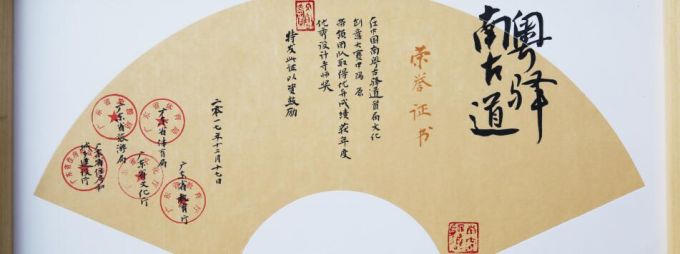 南粤
古驿
道
荣誉证书
在中国南粤古驿道首届文化
创意大赛中冯原
带领团队取得优异成绩获年度
优秀设计导师奖
特发此证以资鼓励
二零一七年十二月十七日
广东省体育局
广东省教育厅
广东省旅游局
广东省文化厅
广东省住房和
城乡建设厅